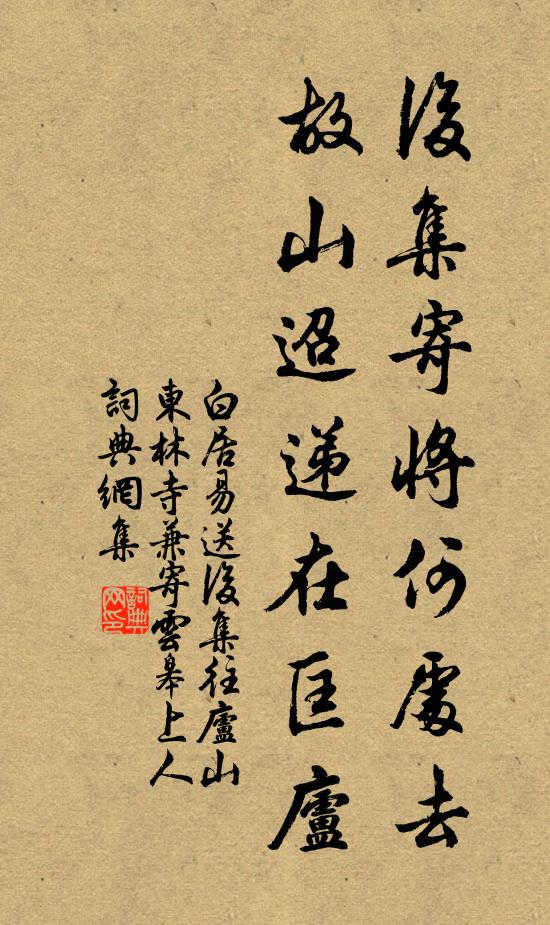 後集寄將何處去
故山迢递在匡廬
白居易送後集往廬山
東林寺兼寄雲皋上人
詞典網集
詞典网印